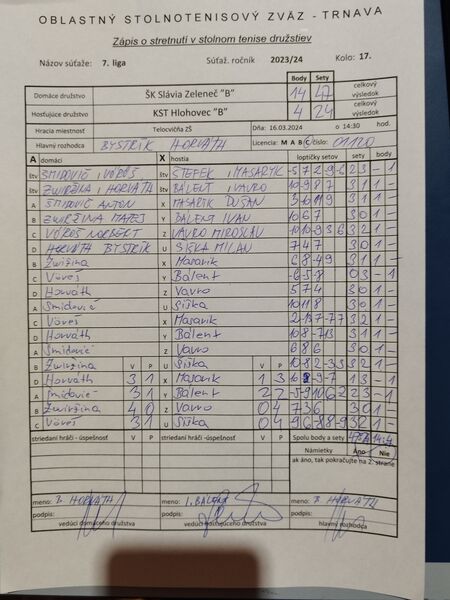 OBLASTNÝ STOLNOTENISOVÝ ZVÄZ - TRNAVA
Zápis o stretnutí v stolnom tenise družstiev
Názov súťaže: 7. liga Súťaž. ročník 2023/24 Kolo: 17.
Body Sety
Domáce družstvo ŠK Slávia Zeleneč "B" 14 47 celkový výsledok
Hosťujúce družstvo KST Hlohovec "B" 4 24 celkový výsledok
Hracia miestnosť Telocvičňa ZŠ Dňa: 16.03.2024 o 14:30 hod.
Hlavný rozhodca BYSTRÍK HORVÁTH Licencia M A B C číslo: 01120
A domáci X hostia loptičky setov sety body
štv ŠMIDOVIČ I VÖRÖŠ štv ŠTEFEK I MASARYK -5 7 2 -9 -6 2 3 - 1
štv ZWIRŽINA I HORVÁTH štv BÁLENT I VAVRO 10 -9 8 7 3 1 1 -
A ŠMIDOVIČ ANTON X MASARIK DUŠAN 3 1 1 -
B ZWIRŽINA MATEJ Y BÁLENT IVAN 10 6 7 3 0 1 -
C VÖRÖŠ NORBERT Z VAVRO MIROSLAV 3 2 1 -
D HORVÁTH BYSTRÍK U ŠIŠKA MILAN 7 4 7 3 0 1 -
B Zwiržina X Masarik 6 8 -4 9 3 1 1 -
C Vöröš Y Bálent -6 -5 -8 0 3 - 1
D Horváth Z Vavro 5 7 4 3 0 1 -
A Šmidovič U Šiška 10 11 8 3 0 1 -
C Vöröš X Masarik 3 2 1 -
D Horváth Y Bálent 10 8 -7 13 3 1 1 -
A Šmidovič Z Vavro 6 8 6 3 0 1 -
B Zwiržina V P U Šiška V P 10 8 2 -3 3 3 2 1 -
D Horváth 3 1 X Masarik 1 3 1 3 - 1
A Šmidovič 3 1 Y Bálent 2 2 2 3 - 1
B Zwiržina 4 0 Z Vavro 0 4 7 3 6 3 0 1 -
C Vöröš 3 1 U Šiška 0 4 9 6 -8 8 -9 3 2 1 -
striedaní hráči - úspešnosť V P striedaní hráči -úspešnosť V P Spolu body a sety
Námietky Áno Nie
ak áno, tak pokračujte na 2. strane
meno: B. HORVÁTH meno: I. BÁLENT meno: B. HORVÁTH
podpis: podpis: podpis:
vedúci domáceho družstva vedúci hosťujúceho družstva hlavný rozhodca